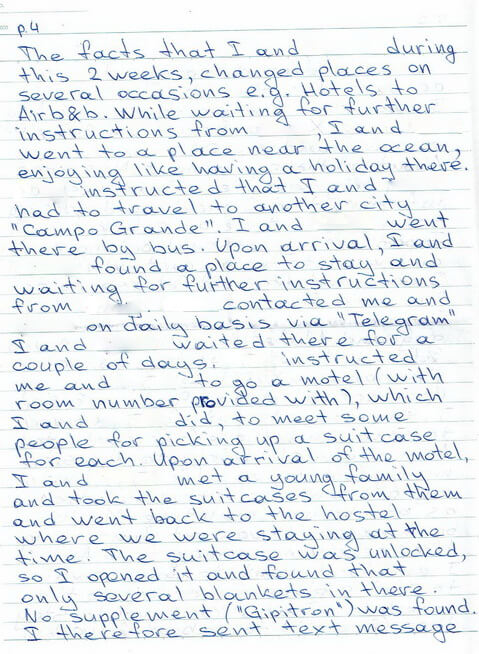 p.4
The facts that I and during
this 2 weeks, changed places on
several occasions e.g. Hotels to
Airb&b. While waiting for further
instructions from , I and
went to a place near the ocean,
enjoying like having a holiday there.
instructed that I and
had to travel to another city
"Campo Grande". I and went
there by bus. Upon arrival, I and
found a place to stay and
waiting for further instructions
from contacted me and
on daily basis via "Telegram"
I and waited there for a
couple of days. instructed
me and to go a motel (with
room number provided with), which
I and did, to meet some
people for picking up a suitcase
for each. Upon arrival of the motel,
I and met a young family
and took the suitcases from them
and went back to the hostel
where we were staying at the
time. The suitcase was unlocked,
so I opened it and found that
only several blankets in there.
No supplement ("Gipitron") was found.
I therefore sent text message